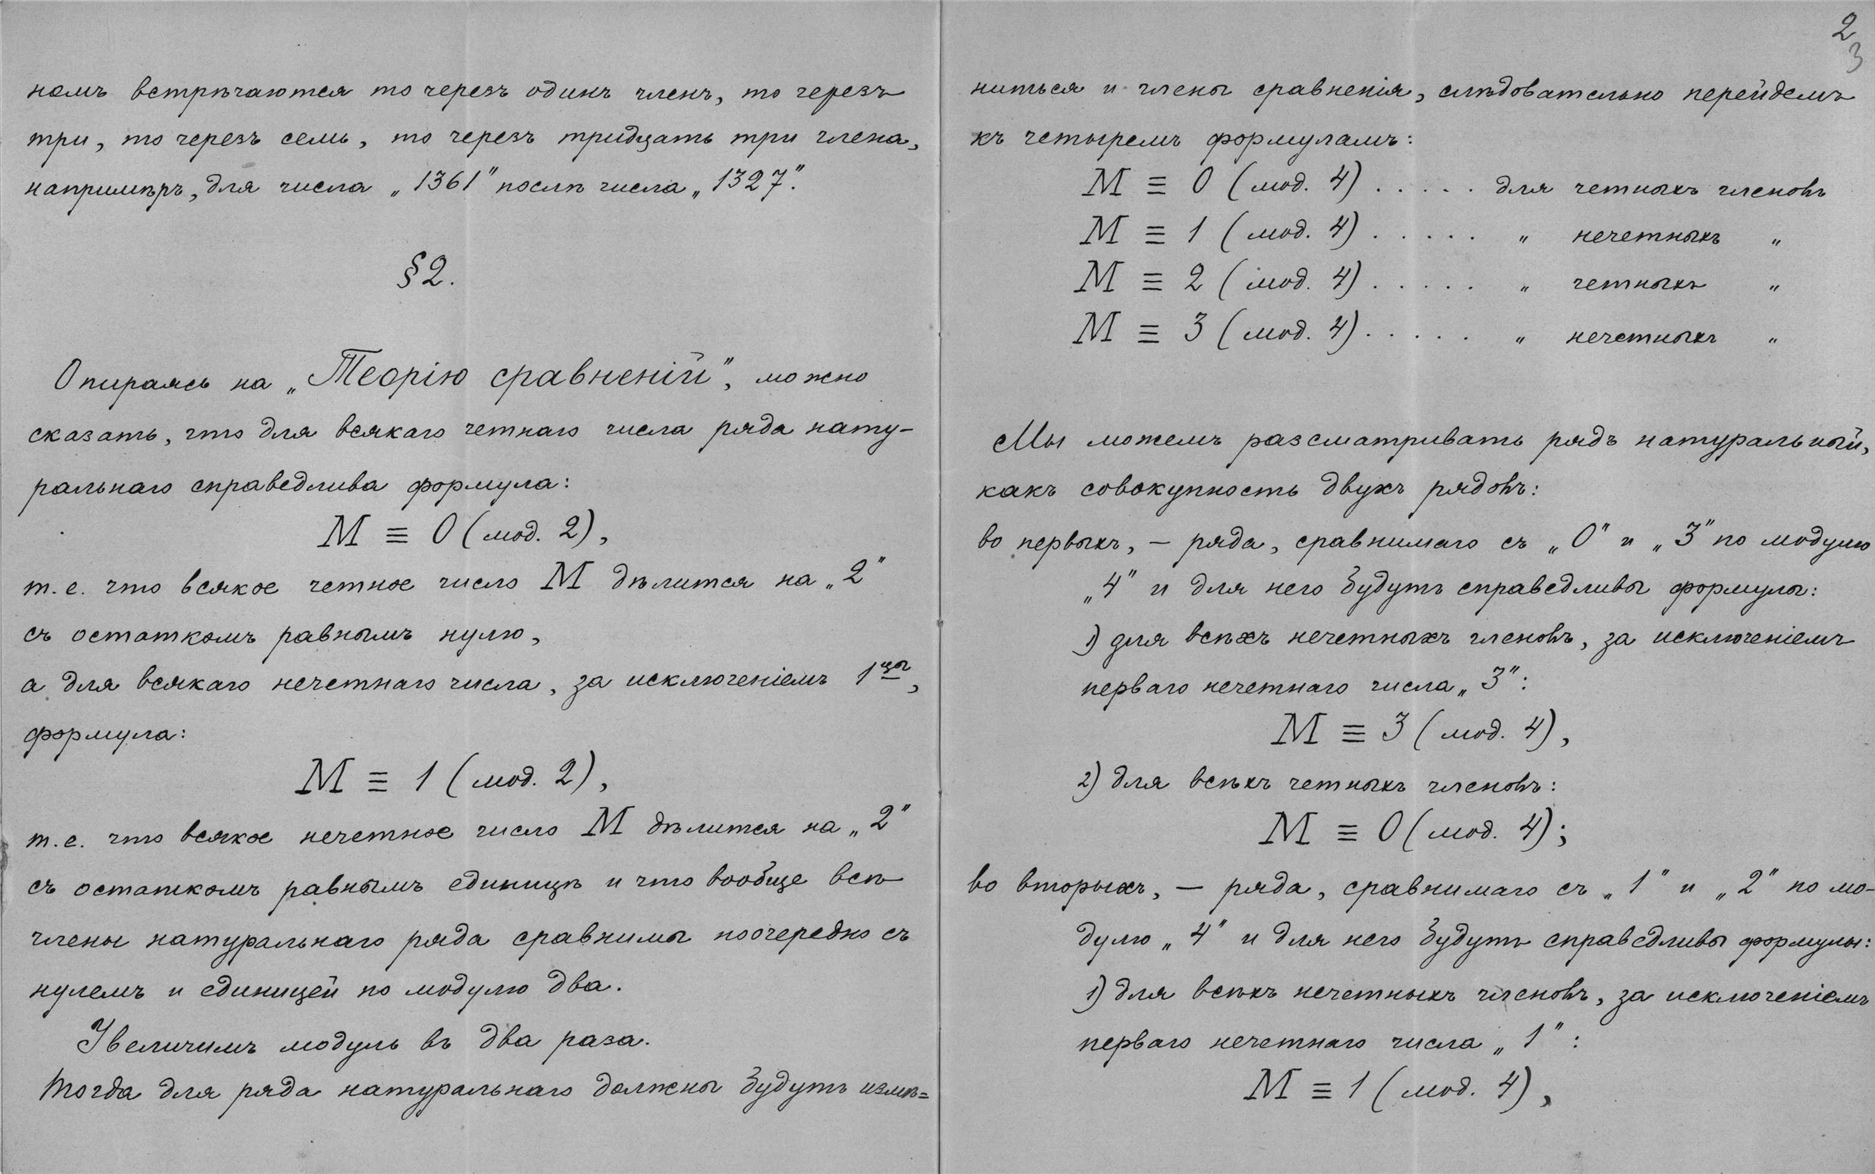 номъ встрѣчаются то черезъ одинъ членъ, то черезъ
три, то черезъ семь, то черезъ тридцать три члена,
напримѣръ, для числа „1361” послѣ числа „1327”.
§2.
Опираясь на „Теорію сравненій”, можно
сказать, что для всякаго четнаго числа ряда нату-
ральнаго справедлива формула:
M ≡ 0 (мод. 2),
т.е. что всякое четное число M дѣлится на „2”
съ остаткомъ равнымъ нулю,
а для всякаго нечетнаго числа, за исключеніемъ 1цы,
формула:
M ≡ 1 (мод. 2),
т.е. что всякое нечетное число M дѣлится на „2”
съ остаткомъ равнымъ единицѣ и что вообще всѣ
члены натуральнаго ряда сравнимы поочередно съ
нулемъ и единицей по модулю два.
Увеличимъ модуль въ два раза.
Тогда для ряда натуральнаго должны будутъ измѣ=
2
3
ниться и члены сравненія, слѣдовательно перейдемъ
къ четыремъ формуламъ:
M ≡ 0 (мод. 4) . . . . . для четныхъ членовъ
M ≡ 1 (мод. 4) . . . . . „ нечетныхъ „
M ≡ 2 (мод. 4) . . . . . „ четныхъ „
M ≡ 3 (мод. 4) . . . . . „ нечетныхъ „
Мы можемъ разсматривать рядъ натуральный,
какъ совокупность двухъ рядовъ:
во первыхъ, — ряда, сравнимаго съ „0” и „3” по модулю
„4” и для него будутъ справедливы формулы:
1) для всѣхъ нечетныхъ членовъ, за исключеніемъ
перваго нечетнаго числа „3”:
M ≡ 3 (мод. 4),
2) для всѣхъ четныхъ членовъ:
M ≡ 0 (мод. 4);
во вторыхъ, — ряда, сравнимаго съ „1” и „2” по мо-
дулю „4” и для него будутъ справедливы формулы:
1) для всѣхъ нечетныхъ членовъ, за исключеніемъ
перваго нечетнаго числа „1”:
M ≡ 1 (мод. 4),